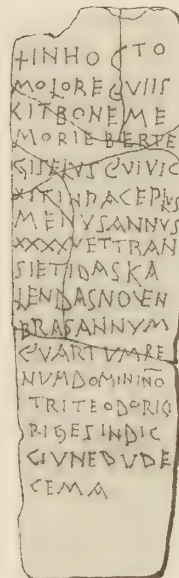 +INHO CTO
MOLORE QVIIS
XITBONEME
MORIEBERTE
GISELVSQVIVIC
XITINPACEPLVS
MENVSANNVS
XXXXVETTRAN
SIETIDASKA
LENDASNOVEN
BRASANNVM
QVARTVMRE
NVMDOMININO
TRITEODORIG
RIGESINDIC
CIVNEDVDE
CEMA